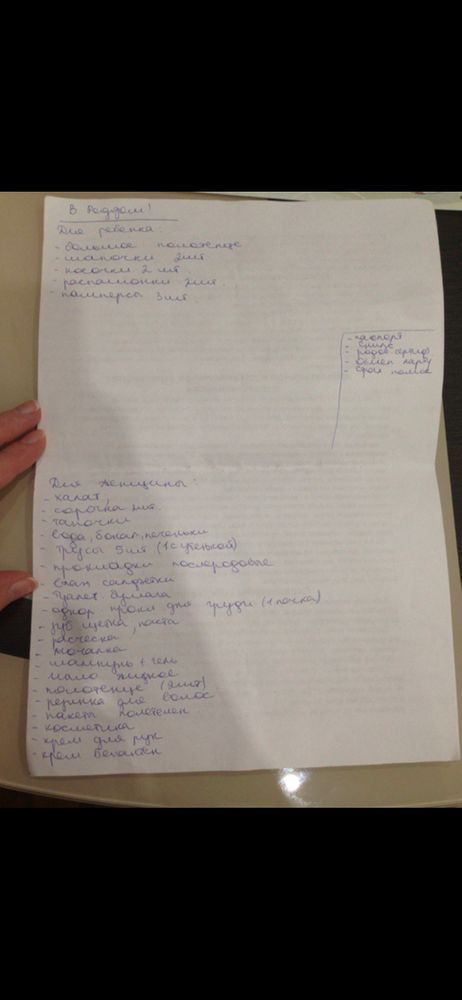 В Роддом!
Для ребенка:
- большое полотенце
- шапочки 2шт.
- носочки 2 шт.
- распашонки 2шт.
- памперсы 3шт.
- паспорт
- снилс
- обмен карту
- страх полис
Для женщины:
- халат,
- сорочка шт.
- тапочки
- вода, бокал, печеньки
- трусы 5шт (1 с утенькой)
- прокладки послеродовые
- салфетки
- туалет. бумага
- однор прокл для груди (1 пачка)
- зуб щетка, паста
- расческа
- мочалка
- шампунь + гель
- мыло жидкое
- полотенце (2шт)
- резинка для волос
- пакеты
- косметика
- крем для рук
- крем Бепантен